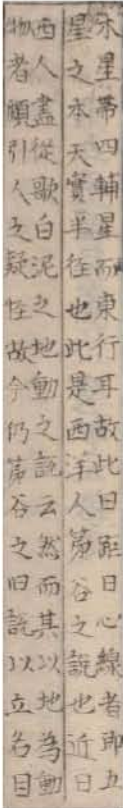 木星帶四輔星而東行耳故此日距日心線者即五
星之本天實半徑也此是西洋人第谷之說也近日
西人盡從歌白泥之地動之說云然而其以地為動
物者頗引人之疑怪故今仍第谷之旧說以立名目